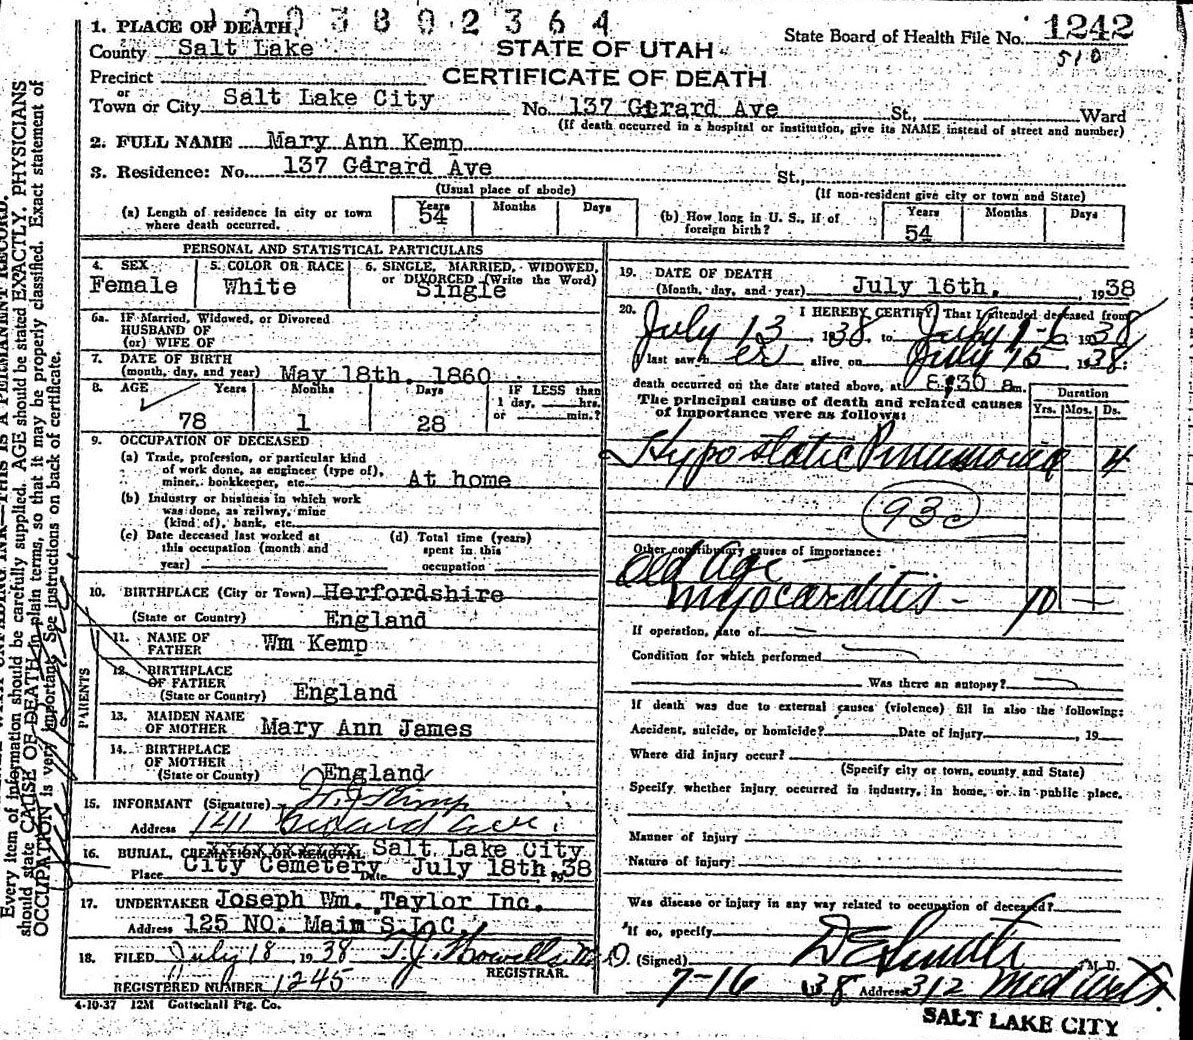 1203802364
1. PLACE OF DEATH
County Salt Lake
STATE OF UTAH
State Board of Health File No. 1242
510
Precinct
CERTIFICATE OF DEATH
or
Town or City Salt Lake City No. 137 Girard Ave St., Ward
(If death occurred in a hospital or institution, give its NAME instead of street and number)
2. FULL NAME Mary Ann Kemp
3. Residence: No. 137 Gdrard Ave St.,
(Usual place of abode) (If non-resident give city or town and State)
(a) Length of residence in city or town where death occurred. Years 54 Months Days
(b) How long in U. S., if of foreign birth? Years 54 Months Days
PERSONAL AND STATISTICAL PARTICULARS
4. SEX Female
5. COLOR OR RACE White
6. SINGLE, MARRIED, WIDOWED, or DIVORCED (Write the Word) Single
6a. IF Married, Widowed, or Divorced
HUSBAND OF
(or) WIFE OF
7. DATE OF BIRTH
(month, day, and year) May 18th, 1860
8. AGE Years Months Days IF LESS than
1 day, hrs.
or min.?
78 1 28
9. OCCUPATION OF DECEASED
(a) Trade, profession, or particular kind
of work done, as engineer (type of),
miner, bookkeeper, etc. At home
(b) Industry or business in which work
was done, as railway, mine
(kind of), bank, etc.
(c) Date deceased last worked at
this occupation (month and
year)
(d) Total time (years)
spent in this
occupation
10. BIRTHPLACE (City or Town) Herfordshire
(State or Country) England
PARENTS
11. NAME OF
FATHER Wm Kemp
12. BIRTHPLACE
OF FATHER
(State or Country) England
13. MAIDEN NAME
OF MOTHER Mary Ann James
14. BIRTHPLACE
OF MOTHER
(State or County) England
15. INFORMANT (Signature) Kemp
Address 141 Girard Ave.
16. BURIAL, CREMATION, OR REMOVAL Salt Lake City
Place City Cemetery Date July 18th, 1938
17. UNDERTAKER Joseph Wm. Taylor Inc.
Address 125 NO. Main S L C.
18. FILED July 18 1938 T. J. Howells M.D.
REGISTRAR.
REGISTERED NUMBER 1245
4-10-37 12M Gottschall Ptg. Co.
19. DATE OF DEATH
(Month, day, and year) July 16th, 1938
20. I HEREBY CERTIFY, That I attended deceased from
July 13, 1938 to July 16 1938
I last saw her alive on July 15, 1938.
death occurred on the date stated above, at 8;30 a m.
The principal cause of death and related causes
of importance were as follows:
Duration
Yrs. Mos. Ds.
Hypostatic Pneumonia 4
93c
Other contributory causes of importance:
Old Age -
Myocarditis - 10 -
If operation, date of
Condition for which performed
Was there an autopsy?
If death was due to external causes (violence) fill in also the following:
Accident, suicide, or homicide? Date of injury , 19
Where did injury occur?
(Specify city or town, county and State)
Specify whether injury occurred in industry, in home, or in public place.
Manner of injury
Nature of injury:
Was disease or injury in any way related to occupation of deceased?
If so, specify
(Signed) M. D.
7-16 1938 Address 312 Med Arts
SALT LAKE CITY
WITH UNFADING INK—THIS IS A PERMANENT RECORD.
Every item of information should be carefully supplied. AGE should be stated EXACTLY. PHYSICIANS
should state CAUSE OF DEATH in plain terms, so that it may be properly classified. Exact statement of
OCCUPATION is very important. See instructions on back of certificate.